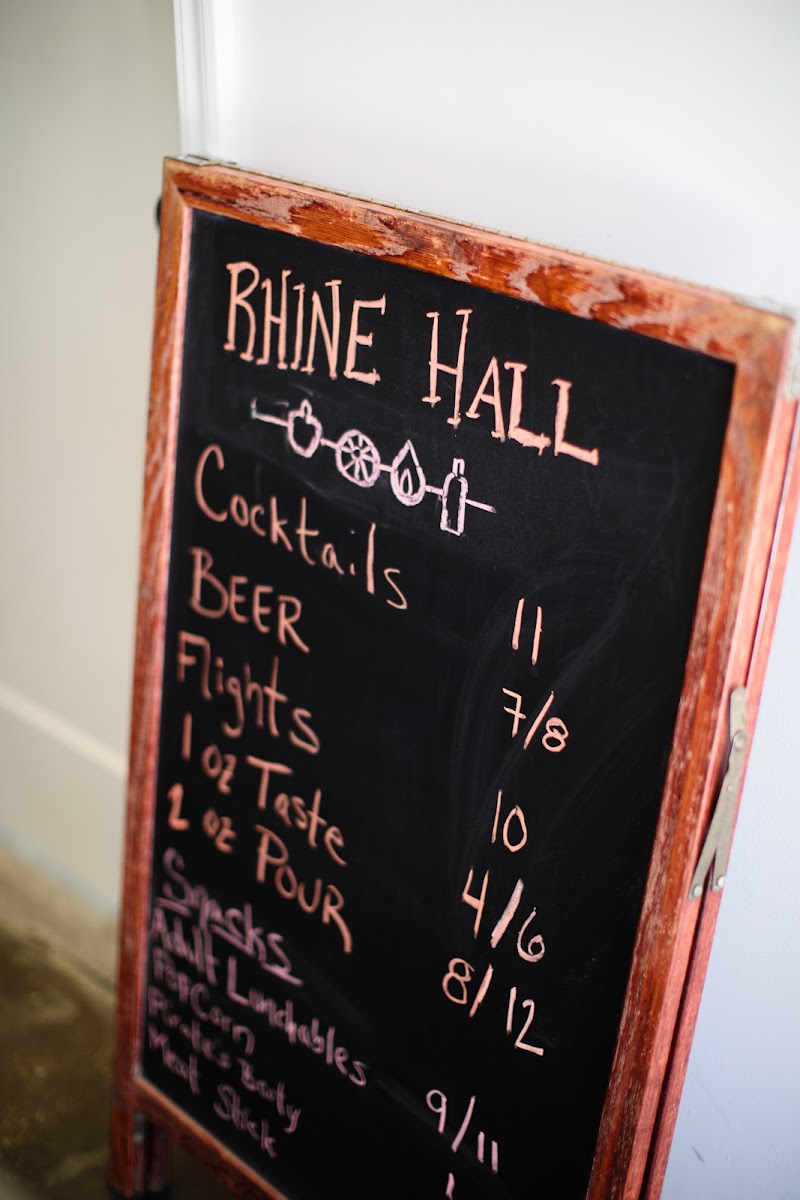 RHINE HALL
Cocktails 11
BEER 7/8
Flights 10
1 oz Taste 4/6
2 oz POUR 8/12
Snasks
Adult Lunchables 9/11
POPCorn 1
Pirate's Booty
Meat Stick